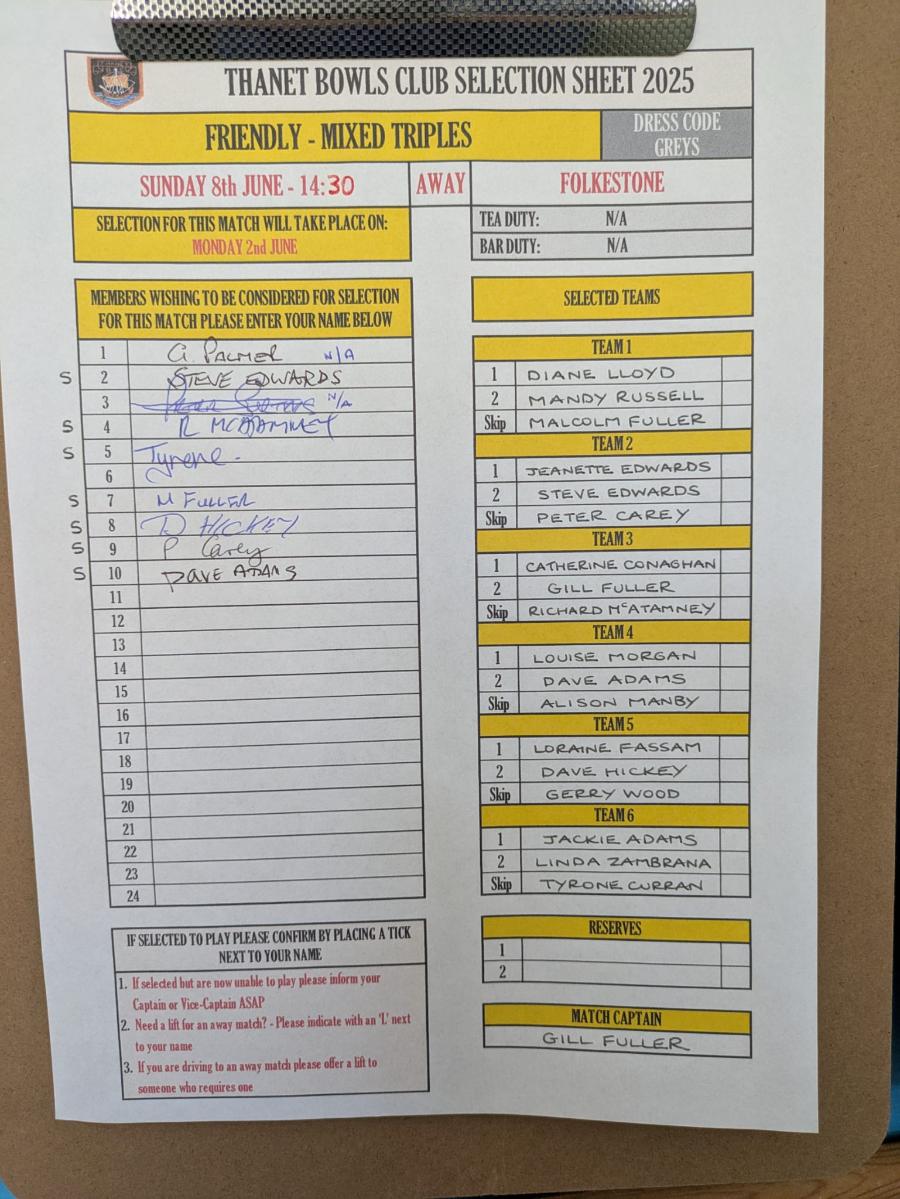 THANET BOWLS CLUB SELECTION SHEET 2025
FRIENDLY - MIXED TRIPLES
DRESS CODE
GREYS
SUNDAY 8th JUNE - 14:30
AWAY
FOLKESTONE
SELECTION FOR THIS MATCH WILL TAKE PLACE ON:
MONDAY 2nd JUNE
TEA DUTY: N/A
BAR DUTY: N/A
MEMBERS WISHING TO BE CONSIDERED FOR SELECTION
FOR THIS MATCH PLEASE ENTER YOUR NAME BELOW
1 G. PALMER N/A
S 2 STEVE EDWARDS
3 N/A
S 4 R MCATAMNEY
S 5 Tyrone -
6
S 7 M FULLER
S 8 D HICKEY
S 9 P Carey
S 10 DAVE ADAMS
11
12
13
14
15
16
17
18
19
20
21
22
23
24
IF SELECTED TO PLAY PLEASE CONFIRM BY PLACING A TICK
NEXT TO YOUR NAME
1. If selected but are now unable to play please inform your
Captain or Vice-Captain ASAP
2. Need a lift for an away match? - Please indicate with an 'L' next
to your name
3. If you are driving to an away match please offer a lift to
someone who requires one
SELECTED TEAMS
TEAM 1
1 DIANE LLOYD
2 MANDY RUSSELL
Skip MALCOLM FULLER
TEAM 2
1 JEANETTE EDWARDS
2 STEVE EDWARDS
Skip PETER CAREY
TEAM 3
1 CATHERINE CONAGHAN
2 GILL FULLER
Skip RICHARD McATAMNEY
TEAM 4
1 LOUISE MORGAN
2 DAVE ADAMS
Skip ALISON MANBY
TEAM 5
1 LORAINE FASSAM
2 DAVE HICKEY
Skip GERRY WOOD
TEAM 6
1 JACKIE ADAMS
2 LINDA ZAMBRANA
Skip TYRONE CURRAN
RESERVES
1
2
MATCH CAPTAIN
GILL FULLER